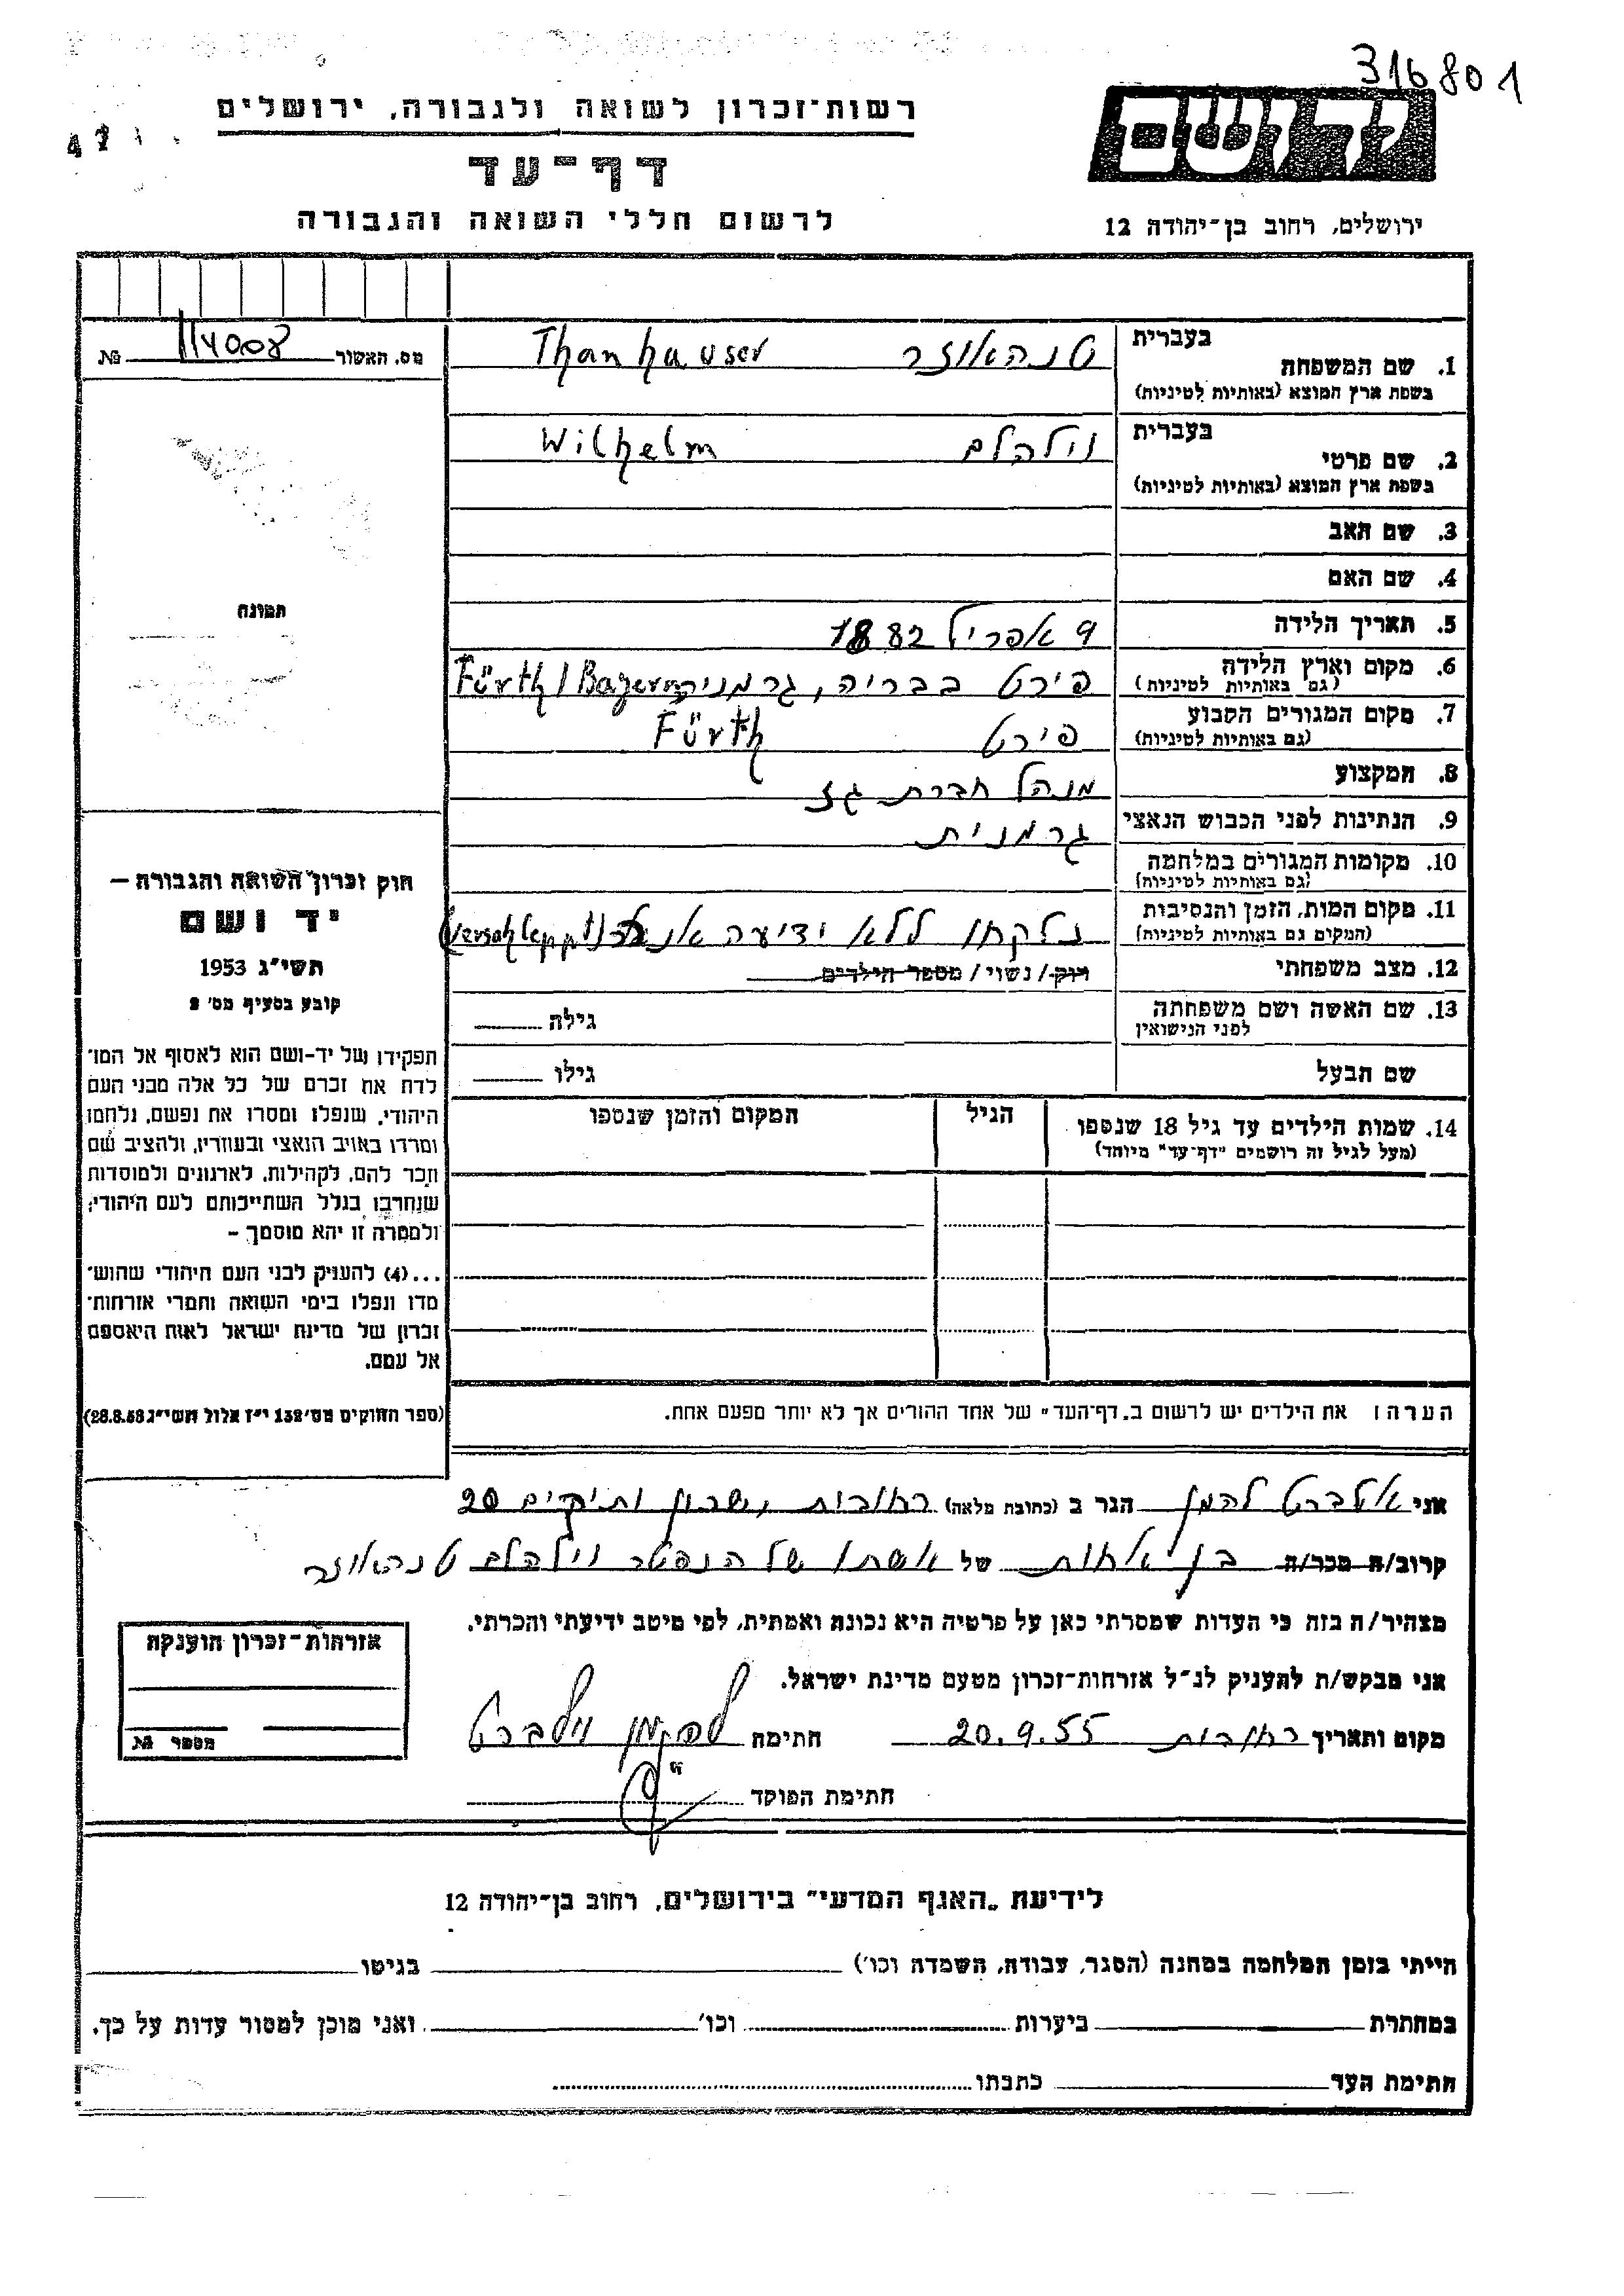 316801
רשות־זכרון לשואה ולגבורה, ירושלים
דף־עד
לרשום חללי השואה והגבורה
ירושלים, רחוב בן־יהודה 12
בעברית
1. שם המשפחה
בשפת ארץ המוצא (באותיות לטיניות)
טנהאוזר Thanhauser
מס. האשור 114008 №
בעברית
2. שם פרטי
בשפת ארץ המוצא (באותיות לטיניות)
וילהלם Wilhelm
3. שם האב
4. שם האם
תמונה
5. תאריך הלידה
9 אפריל 1882
6. מקום וארץ הלידה
(גם באותיות לטיניות)
פירט בבריה, גרמניה Fürth/Bayern
7. מקום המגורים הקבוע
(גם באותיות לטיניות)
פירט Fürth
8. המקצוע
מנהל חברת גז
9. הנתינות לפני הכבוש הנאצי
גרמנית
10. מקומות המגורים במלחמה
(גם באותיות לטיניות)
11. מקום המות, הזמן והנסיבות
(המקום גם באותיות לטיניות)
נלקחו ללא ידיעה (verschleppt)
12. מצב משפחתי
רווק / נשוי / מספר הילדים
13. שם האשה ושם משפחתה
לפני הנישואין
גילה
שם הבעל
גילו
חוק זכרון השואה והגבורה —
יד ושם
תשי״ג 1953
קובע בסעיף מס׳ 2
תפקידו של יד-ושם הוא לאסוף אל המו־
לדת את זכרם של כל אלה מבני העם
היהודי, שנפלו ומסרו את נפשם, נלחמו
ומרדו באויב הנאצי ובעוזריו, ולהציב שם
וזכר להם, לקהילות, לארגונים ולמוסדות
שנחרבו בגלל השתייכותם לעם היהודי;
ולמטרה זו יהא מוסמך –
...(4) להעניק לבני העם היהודי שהוש־
מדו ונפלו בימי השואה והמרי אזרחות־
זכרון של מדינת ישראל לאות היאספם
אל עמם.
(ספר החוקים מס׳ 132 י״ז אלול תשי״ג 28.8.53)
14. שמות הילדים עד גיל 18 שנספו
(מעל לגיל זה רושמים "דף־עד" מיוחד)
הגיל
המקום והזמן שנספו
הערה: את הילדים יש לרשום ב„דף־העד" של אחד ההורים אך לא יותר מפעם אחת.
אני אלברט להמן הגר ב (כתובת מלאה) רחובות, שכון ותיקים 20
קרוב/ה מכר/ה בן אחות של אשתו של הנפטר וילהלם טנהאוזר
מצהיר/ה בזה כי העדות שמסרתי כאן על פרטיה היא נכונה ואמתית, לפי מיטב ידיעתי והכרתי.
אני מבקש/ת להעניק לנ״ל אזרחות־זכרון מטעם מדינת ישראל.
מקום ותאריך רחובות 20.9.55 חתימה
חתימת הפוקד
אזרחות־זכרון הוענקה
מספר №
לידיעת „האגף המדעי" בירושלים, רחוב בן־יהודה 12
הייתי בזמן המלחמה במחנה (הסגר, עבודה, השמדה וכו׳) בגיטו
במחתרת ביערות וכו׳ ואני מוכן למסור עדות על כך.
חתימת העד כתבתו